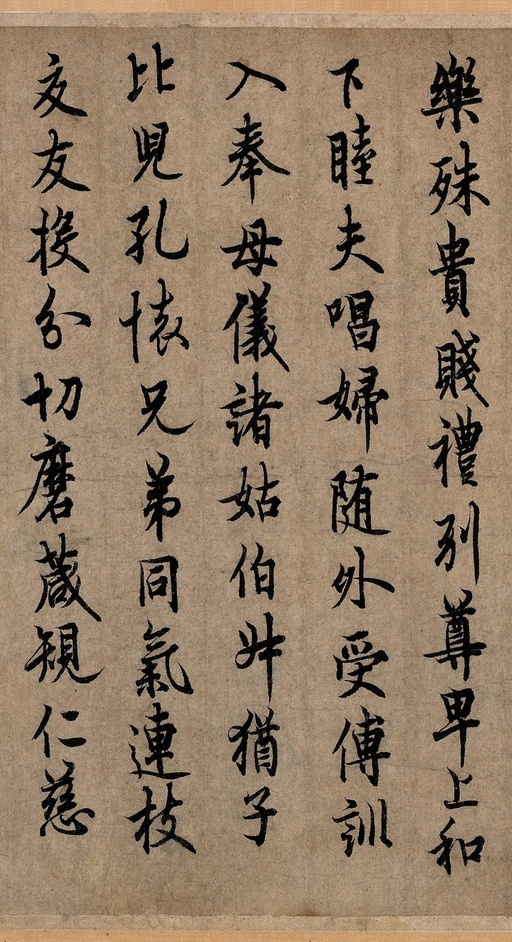 樂殊貴賤禮別尊卑上和
下睦夫唱婦随外受傅訓
入奉母儀諸姑伯叔猶子
比兒孔懐兄弟同氣連枝
交友投分切磨葴規仁慈